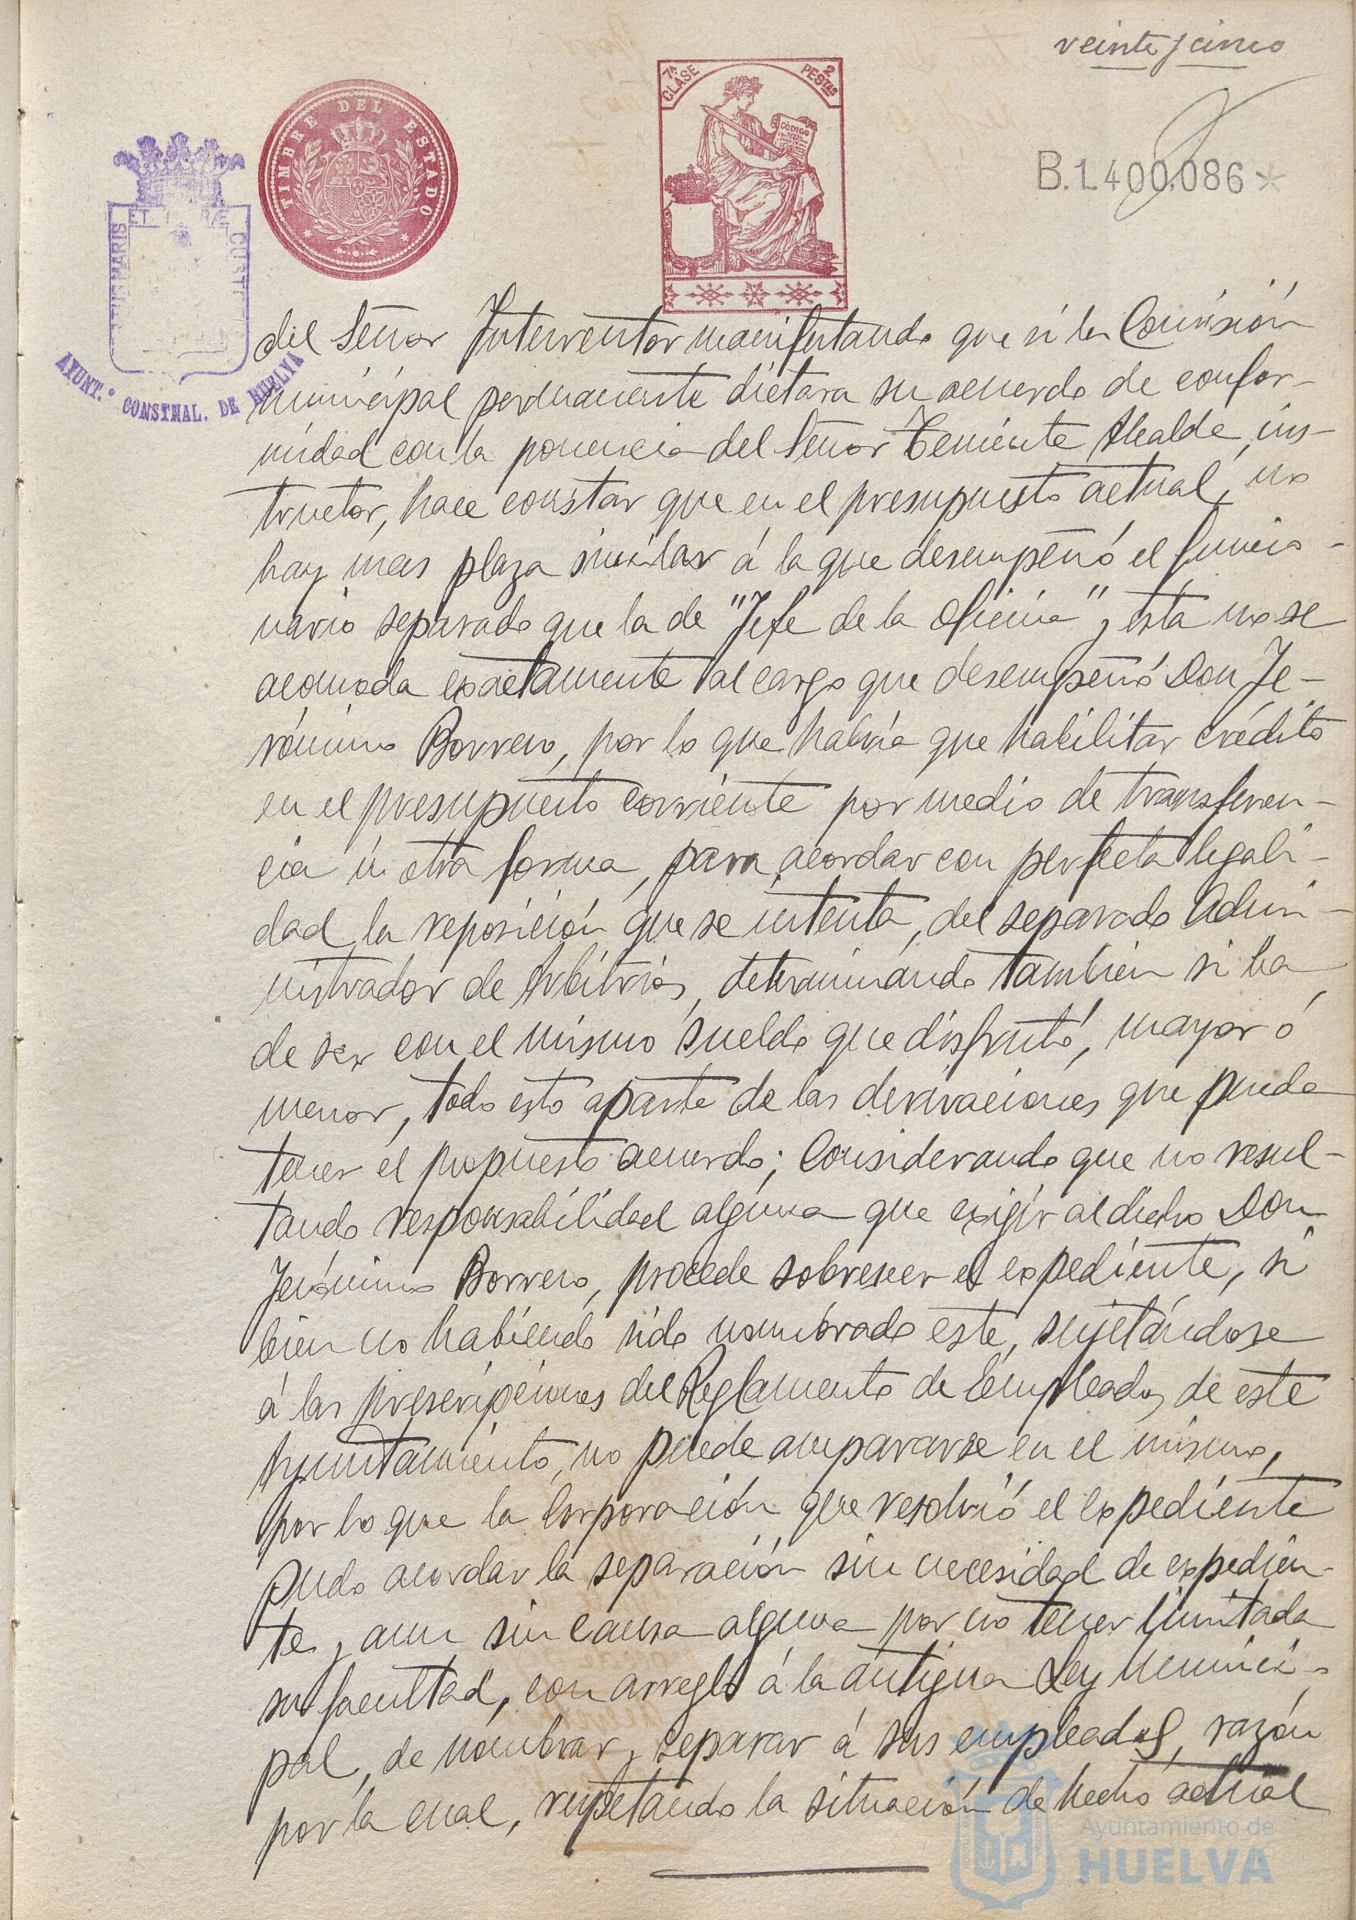 veinte y cinco
7ª CLASE
2 PESTAS
TIMBRE DEL ESTADO
CÓDIGO
B.1.400.086*
AYUNT.º CONSTNAL. DE HUELVA
del Señor Interventor manifestando que si la Comisión
municipal permanente dictara su acuerdo de confor-
midad con la ponencia del Señor Teniente Alcalde ins-
tructor, hace constar que en el presupuesto actual, no
hay mas plaza similar á la que desempeñó el funcio-
nario separado que la de "Jefe de la Oficina" y esta no se
acomoda exactamente al cargo que desempeñó Don Je-
rónimo Borrero, por lo que habria que habilitar crédito
en el presupuesto corriente por medio de transferen-
cia ú otra forma, para acordar con perfecta legali-
dad la reposición que se intenta, del separado Admi-
nistrador de Arbitrios, determinando tambien si ha
de ser con el mismo sueldo que disfrutó, mayor ó
menor, todo esto aparte de las derivaciones que pueda
tener el propuesto acuerdo; Considerando que no resul-
tando responsabilidad alguna que exigir al dicho Don
Jerónimo Borrero, procede sobreseer el expediente, si
bien no habiendo sido nombrado este, sujetándose
á las prescripciones del Reglamento de Empleados de este
Ayuntamiento, no puede ampararse en el mismo,
por lo que la Corporación que resolvió el expediente
pudo acordar la separación sin necesidad de expedien-
te y aun sin causa alguna por no tener limitada
su facultad, con arreglo á la antigua Ley Munici-
pal, de nombrar y separar á sus empleados, razón
por la cual, respetando la situación de hecho actual
Ayuntamiento de
HUELVA